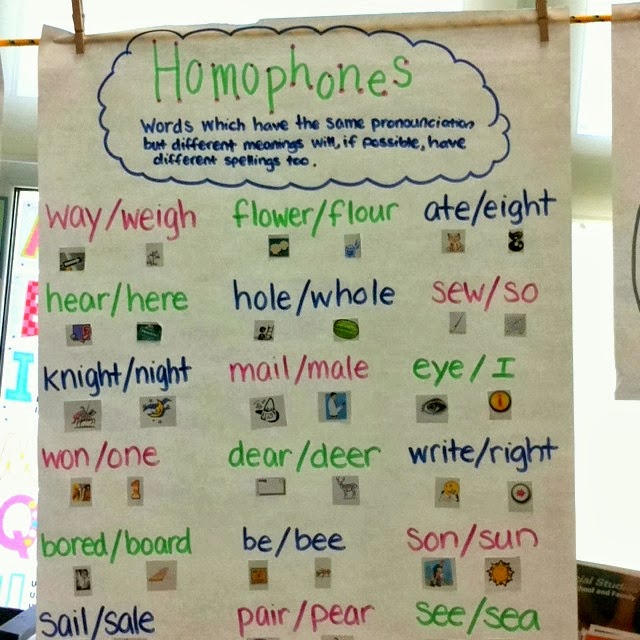 Homophones
Words which have the same pronounciation
but different meanings will, if possible, have
different spellings too.
way/weigh flower/flour ate/eight
hear/here hole/whole sew/so
knight/night mail/male eye/I
won/one dear/deer write/right
bored/board be/bee son/sun
sail/sale pair/pear see/sea